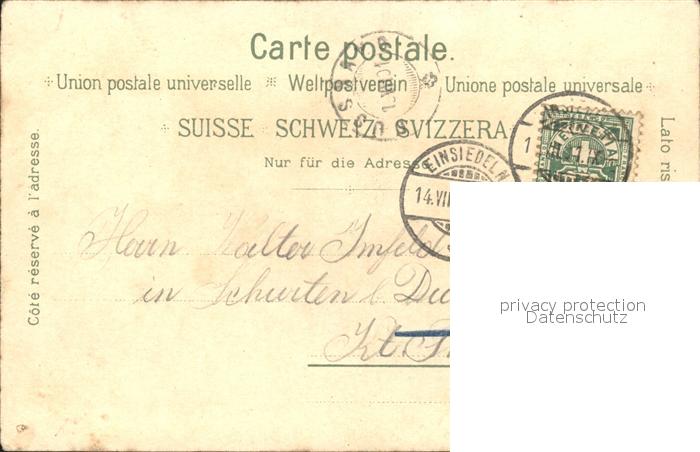 Carte postale.
Union postale universelle Weltpostverein Unione postale universale
SUISSE SCHWEIZ SVIZZERA
Nur für die Adresse
EINSIEDELN
14.VII
Côté réservé à l'adresse.
Lato ris
Herrn Walter Imfeld
in Schurten b. Du
Kt.
privacy protection
Datenschutz